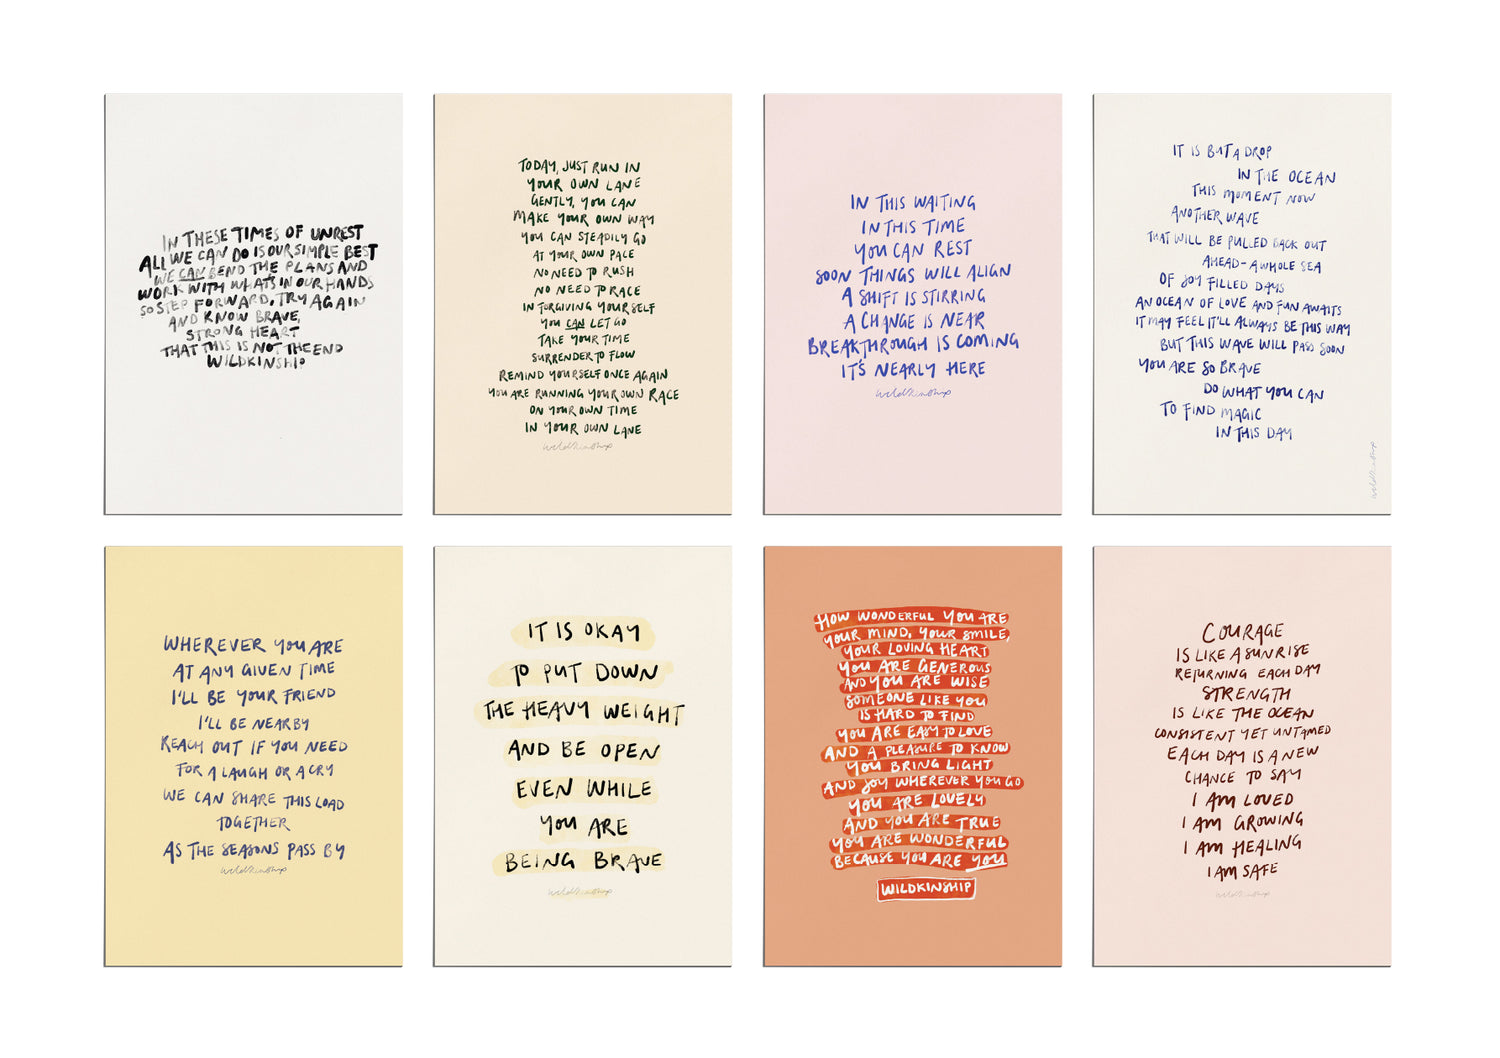 IN THESE TIMES OF UNREST
ALL WE CAN DO IS OUR SIMPLE BEST
WE CAN BEND THE PLANS AND
WORK WITH WHAT'S IN OUR HANDS
SO STEP FORWARD, TRY AGAIN
AND KNOW BRAVE,
STRONG HEART
THAT THIS IS NOT THE END
WILDKINSHIP
TODAY, JUST RUN IN
YOUR OWN LANE
GENTLY, YOU CAN
MAKE YOUR OWN WAY
YOU CAN STEADILY GO
AT YOUR OWN PACE
NO NEED TO RUSH
NO NEED TO RACE
IN FORGIVING YOURSELF
YOU CAN LET GO
TAKE YOUR TIME
SURRENDER TO FLOW
REMIND YOURSELF ONCE AGAIN
YOU ARE RUNNING YOUR OWN RACE
ON YOUR OWN TIME
IN YOUR OWN LANE
wildkinship
IN THIS WAITING
IN THIS TIME
YOU CAN REST
SOON THINGS WILL ALIGN
A SHIFT IS STIRRING
A CHANGE IS NEAR
BREAKTHROUGH IS COMING
IT'S NEARLY HERE
wildkinship
IT IS BUT A DROP
IN THE OCEAN
THIS MOMENT NOW
ANOTHER WAVE
THAT WILL BE PULLED BACK OUT
AHEAD - A WHOLE SEA
OF JOY FILLED DAYS
AN OCEAN OF LOVE AND FUN AWAITS
IT MAY FEEL IT'LL ALWAYS BE THIS WAY
BUT THIS WAVE WILL PASS SOON
YOU ARE SO BRAVE
DO WHAT YOU CAN
TO FIND MAGIC
IN THIS DAY
wildkinship
WHEREVER YOU ARE
AT ANY GIVEN TIME
I'LL BE YOUR FRIEND
I'LL BE NEARBY
REACH OUT IF YOU NEED
FOR A LAUGH OR A CRY
WE CAN SHARE THIS LOAD
TOGETHER
AS THE SEASONS PASS BY
wildkinship
IT IS OKAY
TO PUT DOWN
THE HEAVY WEIGHT
AND BE OPEN
EVEN WHILE
YOU ARE
BEING BRAVE
wildkinship
HOW WONDERFUL YOU ARE
YOUR MIND, YOUR SMILE,
YOUR LOVING HEART
YOU ARE GENEROUS
AND YOU ARE WISE
SOMEONE LIKE YOU
IS HARD TO FIND
YOU ARE EASY TO LOVE
AND A PLEASURE TO KNOW
YOU BRING LIGHT
AND JOY WHEREVER YOU GO
YOU ARE LOVELY
AND YOU ARE TRUE
YOU ARE WONDERFUL
BECAUSE YOU ARE YOU
WILDKINSHIP
COURAGE
IS LIKE A SUNRISE
RETURNING EACH DAY
STRENGTH
IS LIKE THE OCEAN
CONSISTENT YET UNTAMED
EACH DAY IS A NEW
CHANCE TO SAY
I AM LOVED
I AM GROWING
I AM HEALING
I AM SAFE
wildkinship